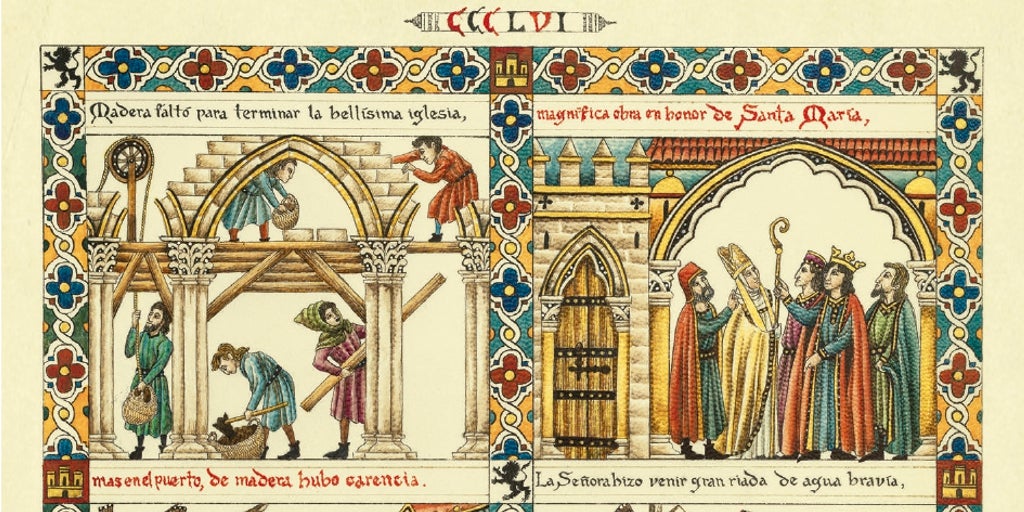 CCCLVI
Madera faltó para terminar la bellísima iglesia,
magnífica obra en honor de Santa María,
mas en el puerto, de madera hubo carencia.
La Señora hizo venir gran riada de agua bravía,